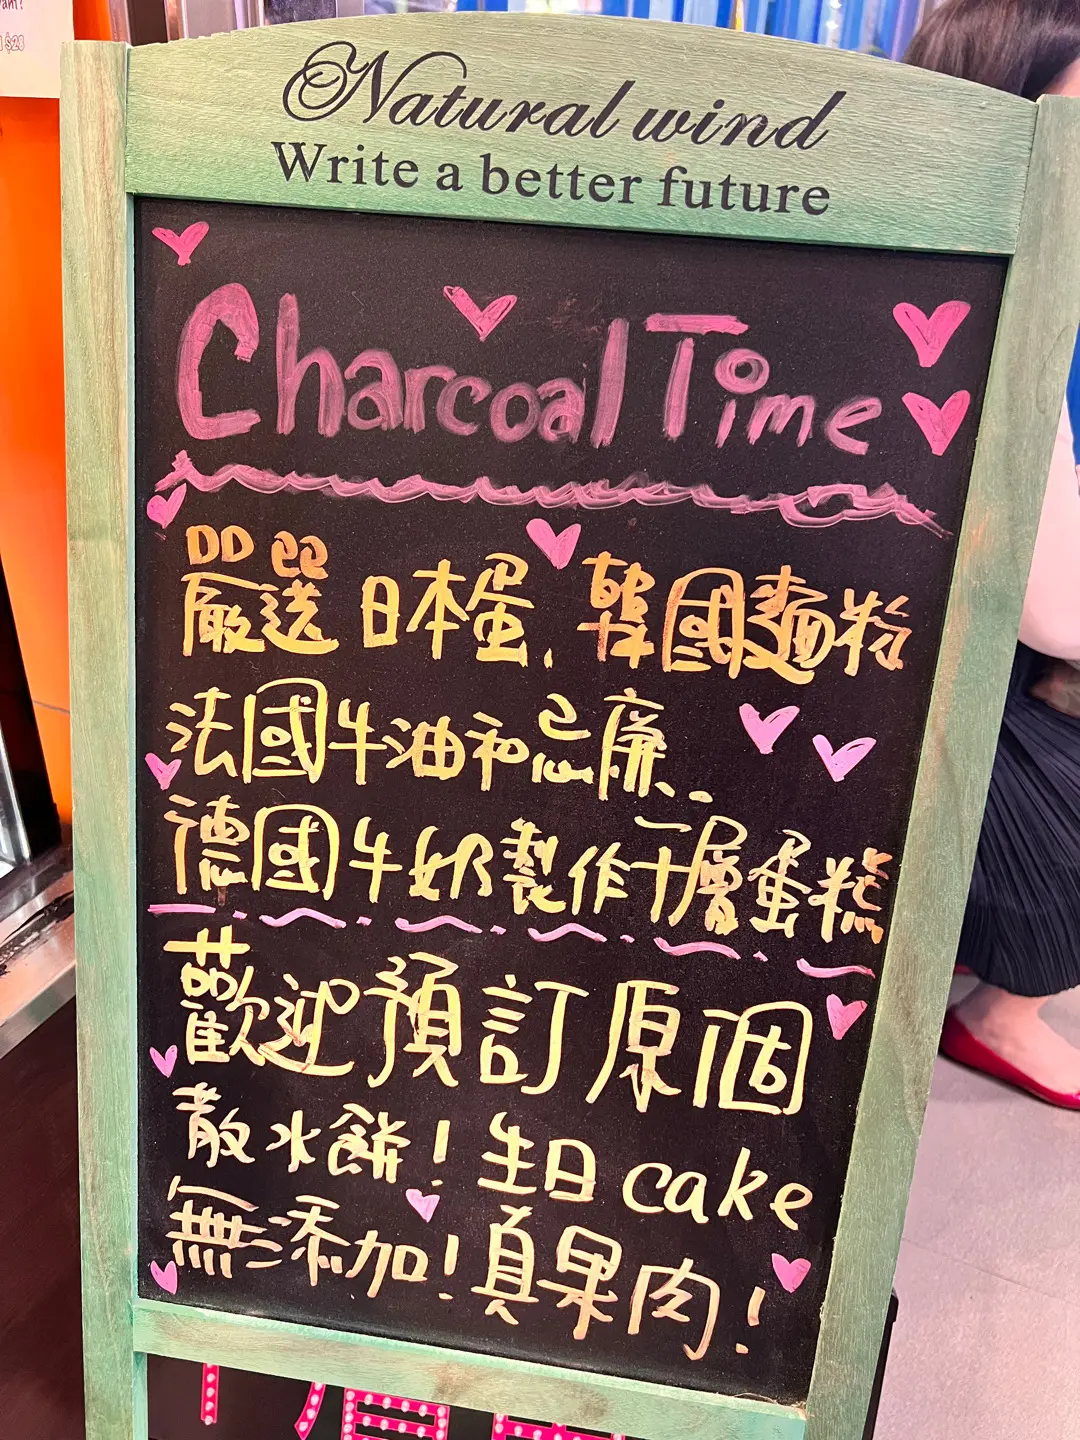 $28
Natural wind
Write a better future
Charcoal Time
嚴選日本蛋、韓國麵粉
法國牛油和忌廉、
德國牛奶製作千層蛋糕
歡迎預訂原個
散水餅！生日cake
無添加！真果肉！